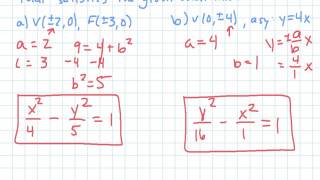 a) V(±2,0), F(±3,0)
a = 2   9 = 4 + b²
c = 3   -4 -4
b² = 5
x²/4 - y²/5 = 1
b) V(0,±4), asy: y=4x
a = 4   y = ±a/b x
b = 1   = 4/1 x
y²/16 - x²/1 = 1